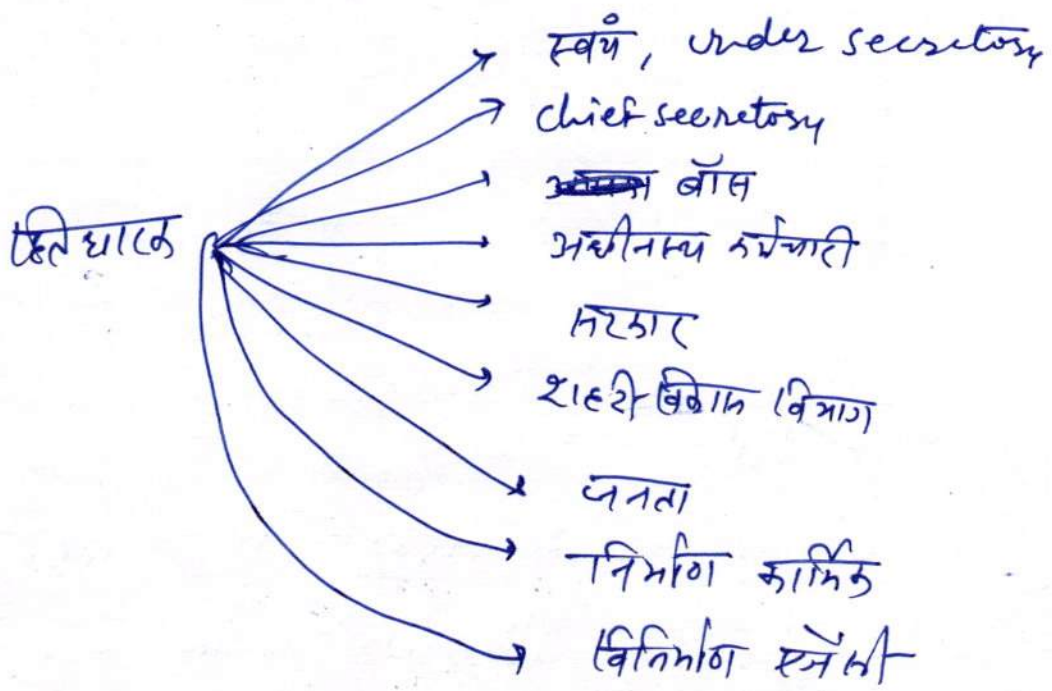 स्वयं, under secretory
chief secretory
बॉस
हितधारक
अधीनस्थ कर्मचारी
सरकार
शहरी विकास विभाग
जनता
निर्माण कार्मिक
विनिर्माण एजेंसी